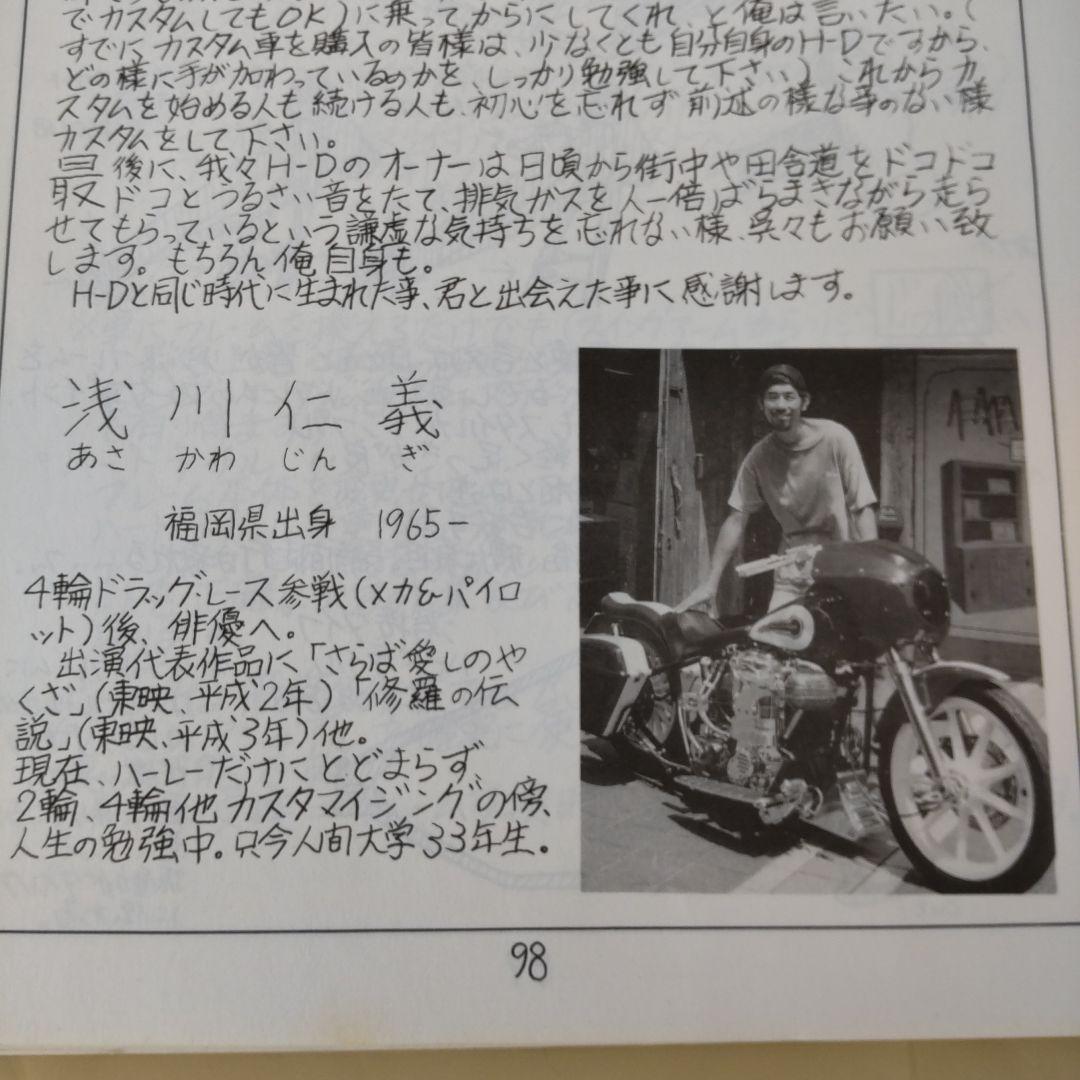 でカスタムしてもOK)に乗ってからにしてくれ、と俺は言いたい。(
すでにカスタム車を購入の皆様は、少なくとも自分自身のH-Dですから、
どの様に手が加わっているのかを、しっかり勉強して下さい)これからカ
スタムを始める人も続ける人も、初心を忘れず前述の様な事のない様
カスタムをして下さい。
最後に、我々H-Dのオーナーは日頃から街中や田舎道をドコドコ
ドコとうるさい音をたて、排気ガスを人一倍ばらまきながら走ら
せてもらっているという謙虚な気持ちを忘れない様、呉々もお願い致
します。もちろん俺自身も。
H-Dと同じ時代に生まれた事、君と出会えた事に感謝します。
浅川仁義
あさ かわ じん ぎ
福岡県出身 1965-
4輪ドラッグ・レース参戦(メカ&パイロ
ット)後、俳優へ。
出演代表作品に「さらば愛しのや
くざ」(東映、平成2年)「修羅の伝
説」(東映、平成3年)他。
現在、ハーレーだけにとどまらず、
2輪、4輪他カスタマイジングの傍、
人生の勉強中。只今人間大学33年生。
98